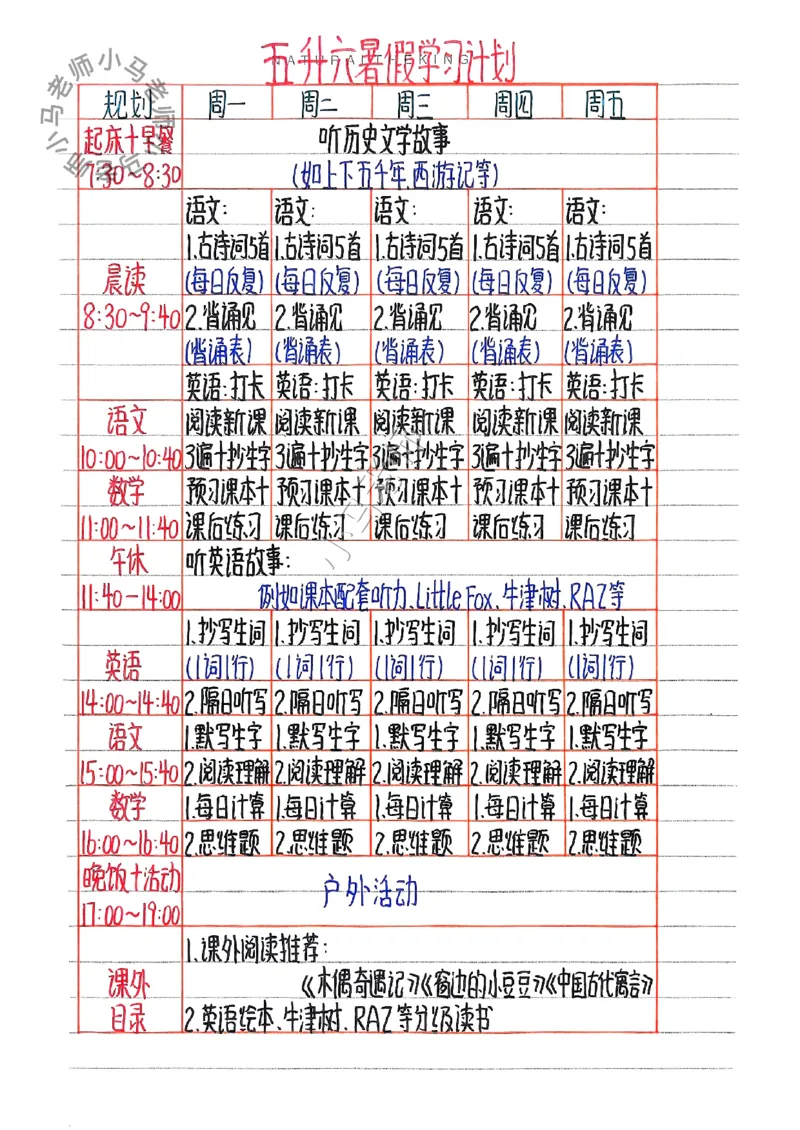 五升六暑假学习计划
NATURAL THEKING
小马老师小马老师
小马老师
规划 周一 周二 周三 周四 周五
起床+早餐 听历史文学故事
7:30~8:30 (如上下五千年,西游记等)
语文: 语文: 语文: 语文: 语文:
1.古诗词5首 1.古诗词5首 1.古诗词5首 1.古诗词5首 1.古诗词5首
晨读 (每日反复) (每日反复) (每日反复) (每日反复) (每日反复)
8:30~9:40 2.背诵见 2.背诵见 2.背诵见 2.背诵见 2.背诵见
(背诵表) (背诵表) (背诵表) (背诵表) (背诵表)
英语:打卡 英语:打卡 英语:打卡 英语:打卡 英语:打卡
语文 阅读新课 阅读新课 阅读新课 阅读新课 阅读新课
10:00~10:40 3遍+抄生字 3遍+抄生字 3遍+抄生字 3遍+抄生字 3遍+抄生字
数学 预习课本+ 预习课本+ 预习课本+ 预习课本+ 预习课本+
11:00~11:40 课后练习 课后练习 课后练习 课后练习 课后练习
小马老师
午休 听英语故事:
11:40-14:00 例如课本配套听力、Little Fox、牛津树、RAZ等
1.抄写生词 1.抄写生词 1.抄写生词 1.抄写生词 1.抄写生词
英语 (1词1行) (1词1行) (1词1行) (1词1行) (1词1行)
14:00~14:40 2.隔日听写 2.隔日听写 2.隔日听写 2.隔日听写 2.隔日听写
语文 1.默写生字 1.默写生字 1.默写生字 1.默写生字 1.默写生字
15:00~15:40 2.阅读理解 2.阅读理解 2.阅读理解 2.阅读理解 2.阅读理解
数学 1.每日计算 1.每日计算 1.每日计算 1.每日计算 1.每日计算
16:00~16:40 2.思维题 2.思维题 2.思维题 2.思维题 2.思维题
晚饭+活动 户外活动
17:00~19:00
1.课外阅读推荐:
课外 《木偶奇遇记》《窗边的小豆豆》《中国古代寓言》
目录 2.英语绘本、牛津树、RAZ等分级读书